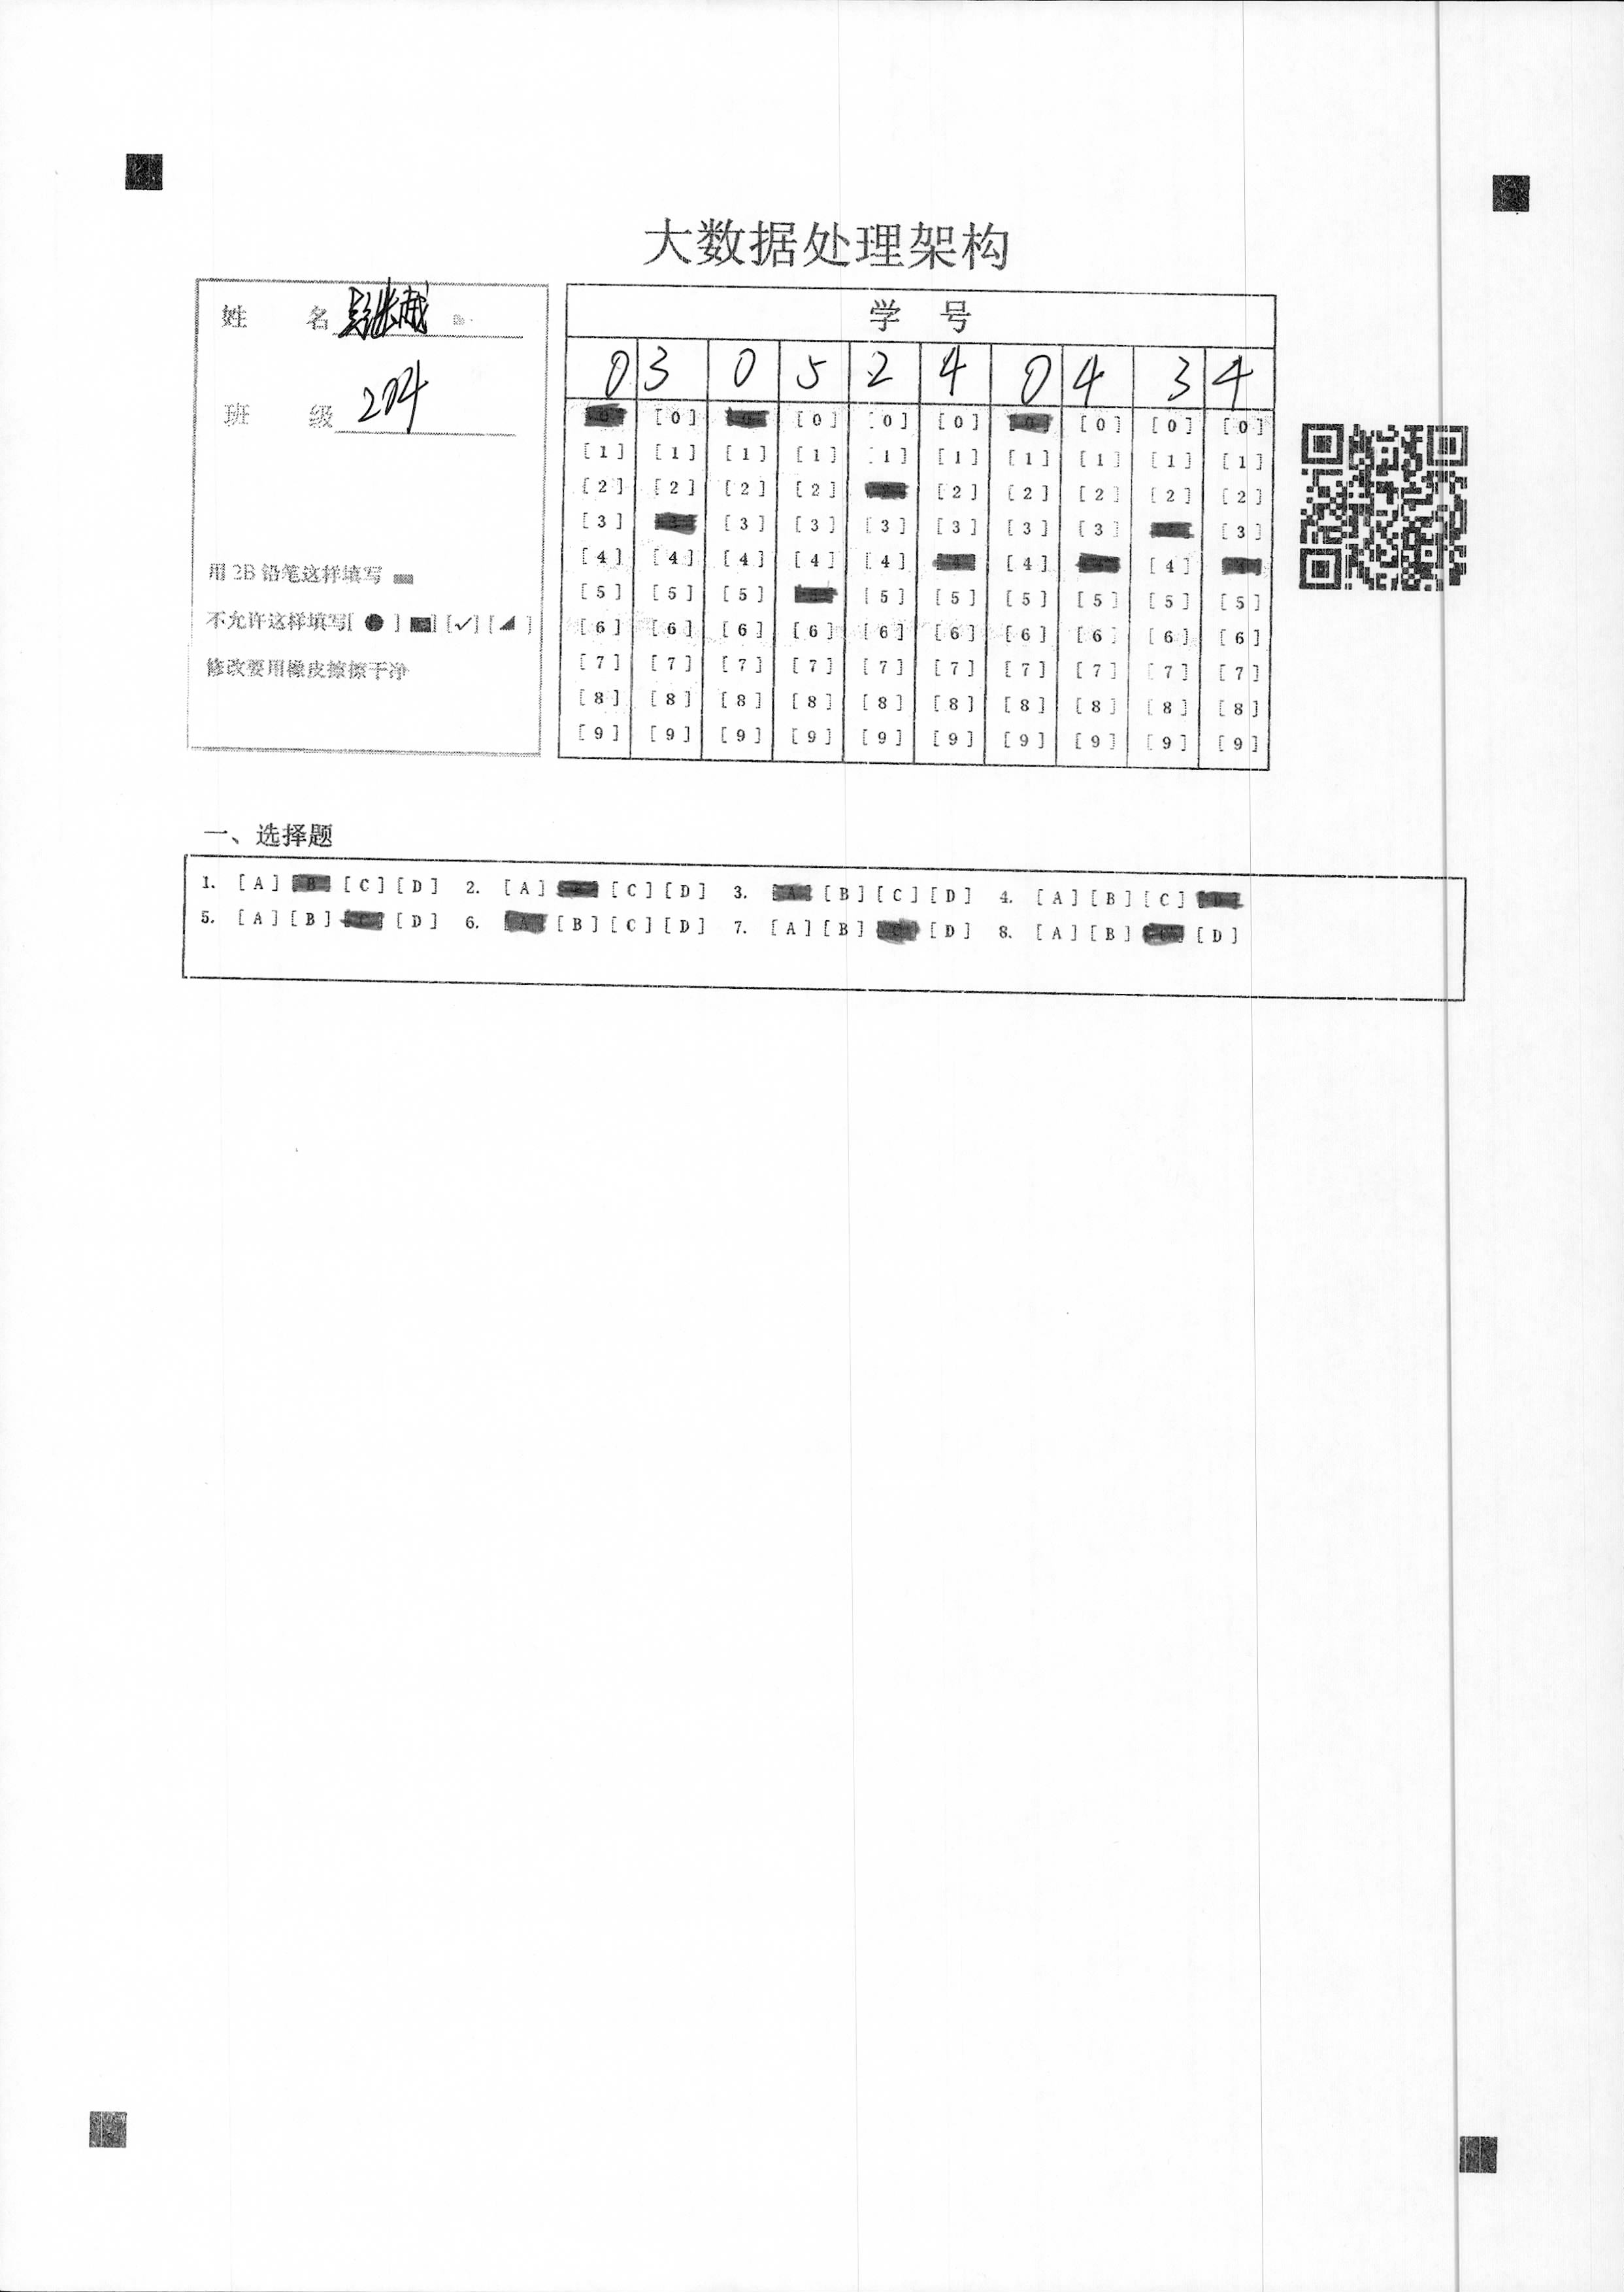 大数据处理架构
姓 名
班 级 204
用 2B 铅笔这样填写
不允许这样填写[ ● ] [■] [✓] [◢ ]
修改要用橡皮擦擦干净
学 号
0 3 0 5 2 4 0 4 3 4
[0] [0] [0] [0] [0] [0] [0] [0]
[1] [1] [1] [1] [1] [1] [1] [1] [1] [1]
[2] [2] [2] [2] [2] [2] [2] [2] [2]
[3] [3] [3] [3] [3] [3] [3] [3]
[4] [4] [4] [4] [4] [4] [4]
[5] [5] [5] [5] [5] [5] [5] [5] [5]
[6] [6] [6] [6] [6] [6] [6] [6] [6] [6]
[7] [7] [7] [7] [7] [7] [7] [7] [7] [7]
[8] [8] [8] [8] [8] [8] [8] [8] [8] [8]
[9] [9] [9] [9] [9] [9] [9] [9] [9] [9]
一、选择题
1. [A] [B] [C] [D] 2. [A] [C] [D] 3. [A] [B] [C] [D] 4. [A] [B] [C] [D]
5. [A] [B] [C] [D] 6. [A] [B] [C] [D] 7. [A] [B] [C] [D] 8. [A] [B] [C] [D]